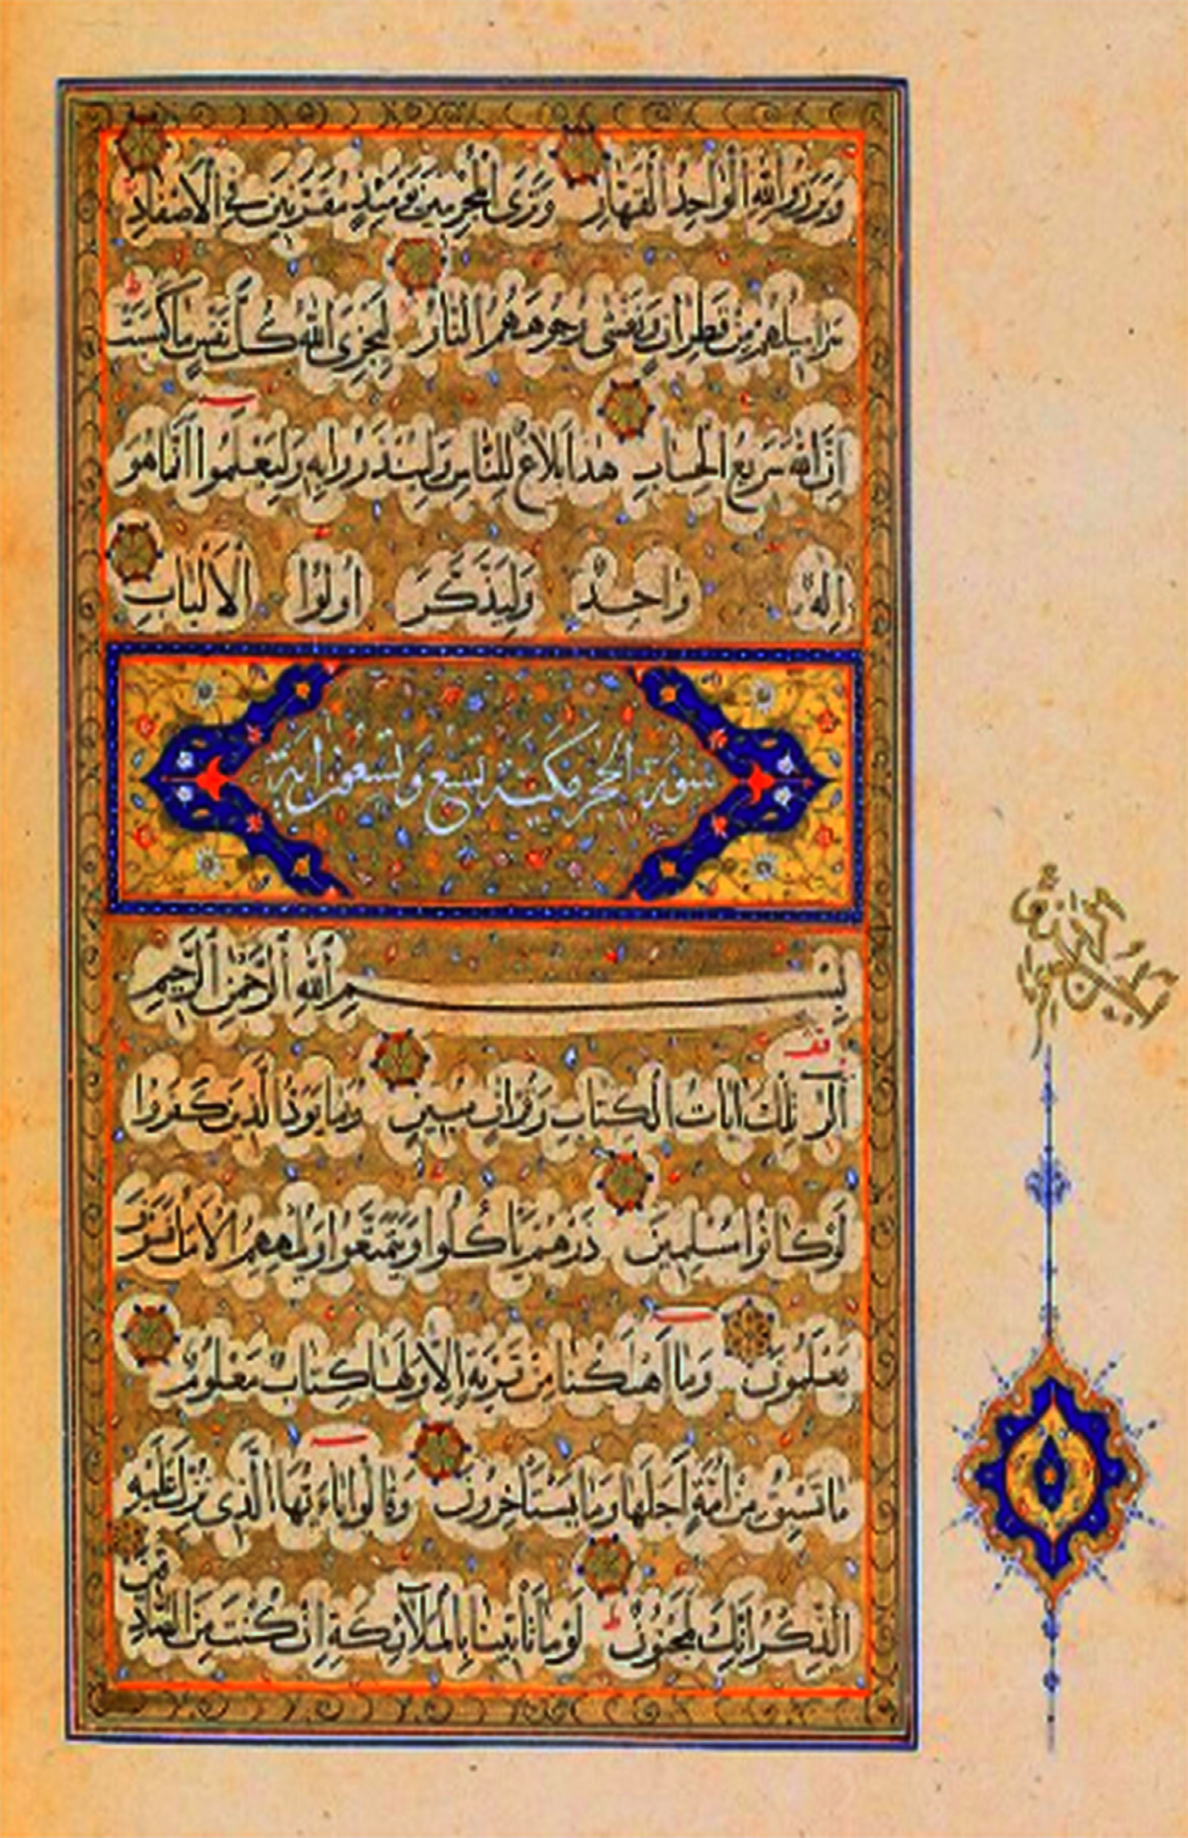 وَبَرَزُوا لِلّٰهِ الْوَاحِدِ الْقَهَّارِ وَتَرَى الْمُجْرِمِينَ يَوْمَئِذٍ مُقَرَّنِينَ فِي الْاَصْفَادِ
سَرَابِيلُهُمْ مِنْ قَطِرَانٍ وَتَغْشٰى وُجُوهَهُمُ النَّارُ لِيَجْزِيَ اللّٰهُ كُلَّ نَفْسٍ مَا كَسَبَتْ ط
اِنَّ اللّٰهَ سَرِيعُ الْحِسَابِ هٰذَا بَلَاغٌ لِلنَّاسِ وَلِيُنْذَرُوا بِهِ وَلِيَعْلَمُوا اَنَّمَا هُوَ
اِلٰهٌ وَاحِدٌ وَلِيَذَّكَّرَ اُولُوا الْاَلْبَابِ
سورة الحجر مكية تسع وتسعون اية
بِسْمِ اللّٰهِ الرَّحْمٰنِ الرَّحِيمِ
الٓرٰ تِلْكَ اٰيَاتُ الْكِتَابِ وَقُرْاٰنٍ مُبِينٍ رُبَمَا يَوَدُّ الَّذِينَ كَفَرُوا
لَوْ كَانُوا مُسْلِمِينَ ذَرْهُمْ يَاْكُلُوا وَيَتَمَتَّعُوا وَيُلْهِهِمُ الْاَمَلُ فَسَوْفَ
يَعْلَمُونَ وَمَا اَهْلَكْنَا مِنْ قَرْيَةٍ اِلَّا وَلَهَا كِتَابٌ مَعْلُومٌ
مَا تَسْبِقُ مِنْ اُمَّةٍ اَجَلَهَا وَمَا يَسْتَاْخِرُونَ وَقَالُوا يَا اَيُّهَا الَّذِي نُزِّلَ عَلَيْهِ
الذِّكْرُ اِنَّكَ لَمَجْنُونٌ ط لَوْ مَا تَاْتِينَا بِالْمَلٰٓئِكَةِ اِنْ كُنْتَ مِنَ الصَّادِقِينَ